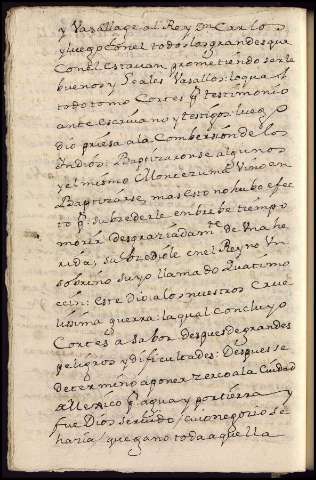 y Vasallage al Rey Dn Carlos
y luego con el todos los grandes que
con el estavan, prometiendo serle
buenos y leales Vasallos: lo qual
todo tomó Cortes pr testimonio
ante escrivano y testigos: luego
dio priesa a la Combersion de los
Indios: Baptizaronse algunos
y el mismo Monte zuma vino en
Baptizarse, mas esto no hubo efec
to pr subcederle en bre be tiempo
morir Desgraziadamte de Una he
rida; Subcedióle en el Reyno Un
sobrino suyo llamado Quatimo
ccin: Este Dio a los nuestros Crue
lissima guerra: la qual Concluyo
Cortes a sabor despues de grandes
peligros y dificultades: Despues se
determinó a poner zerco a la Ciudad
a Mexico pr agua y por tierra y
fue Dios servido / cuio negocio se
haria / que gano toda aquella